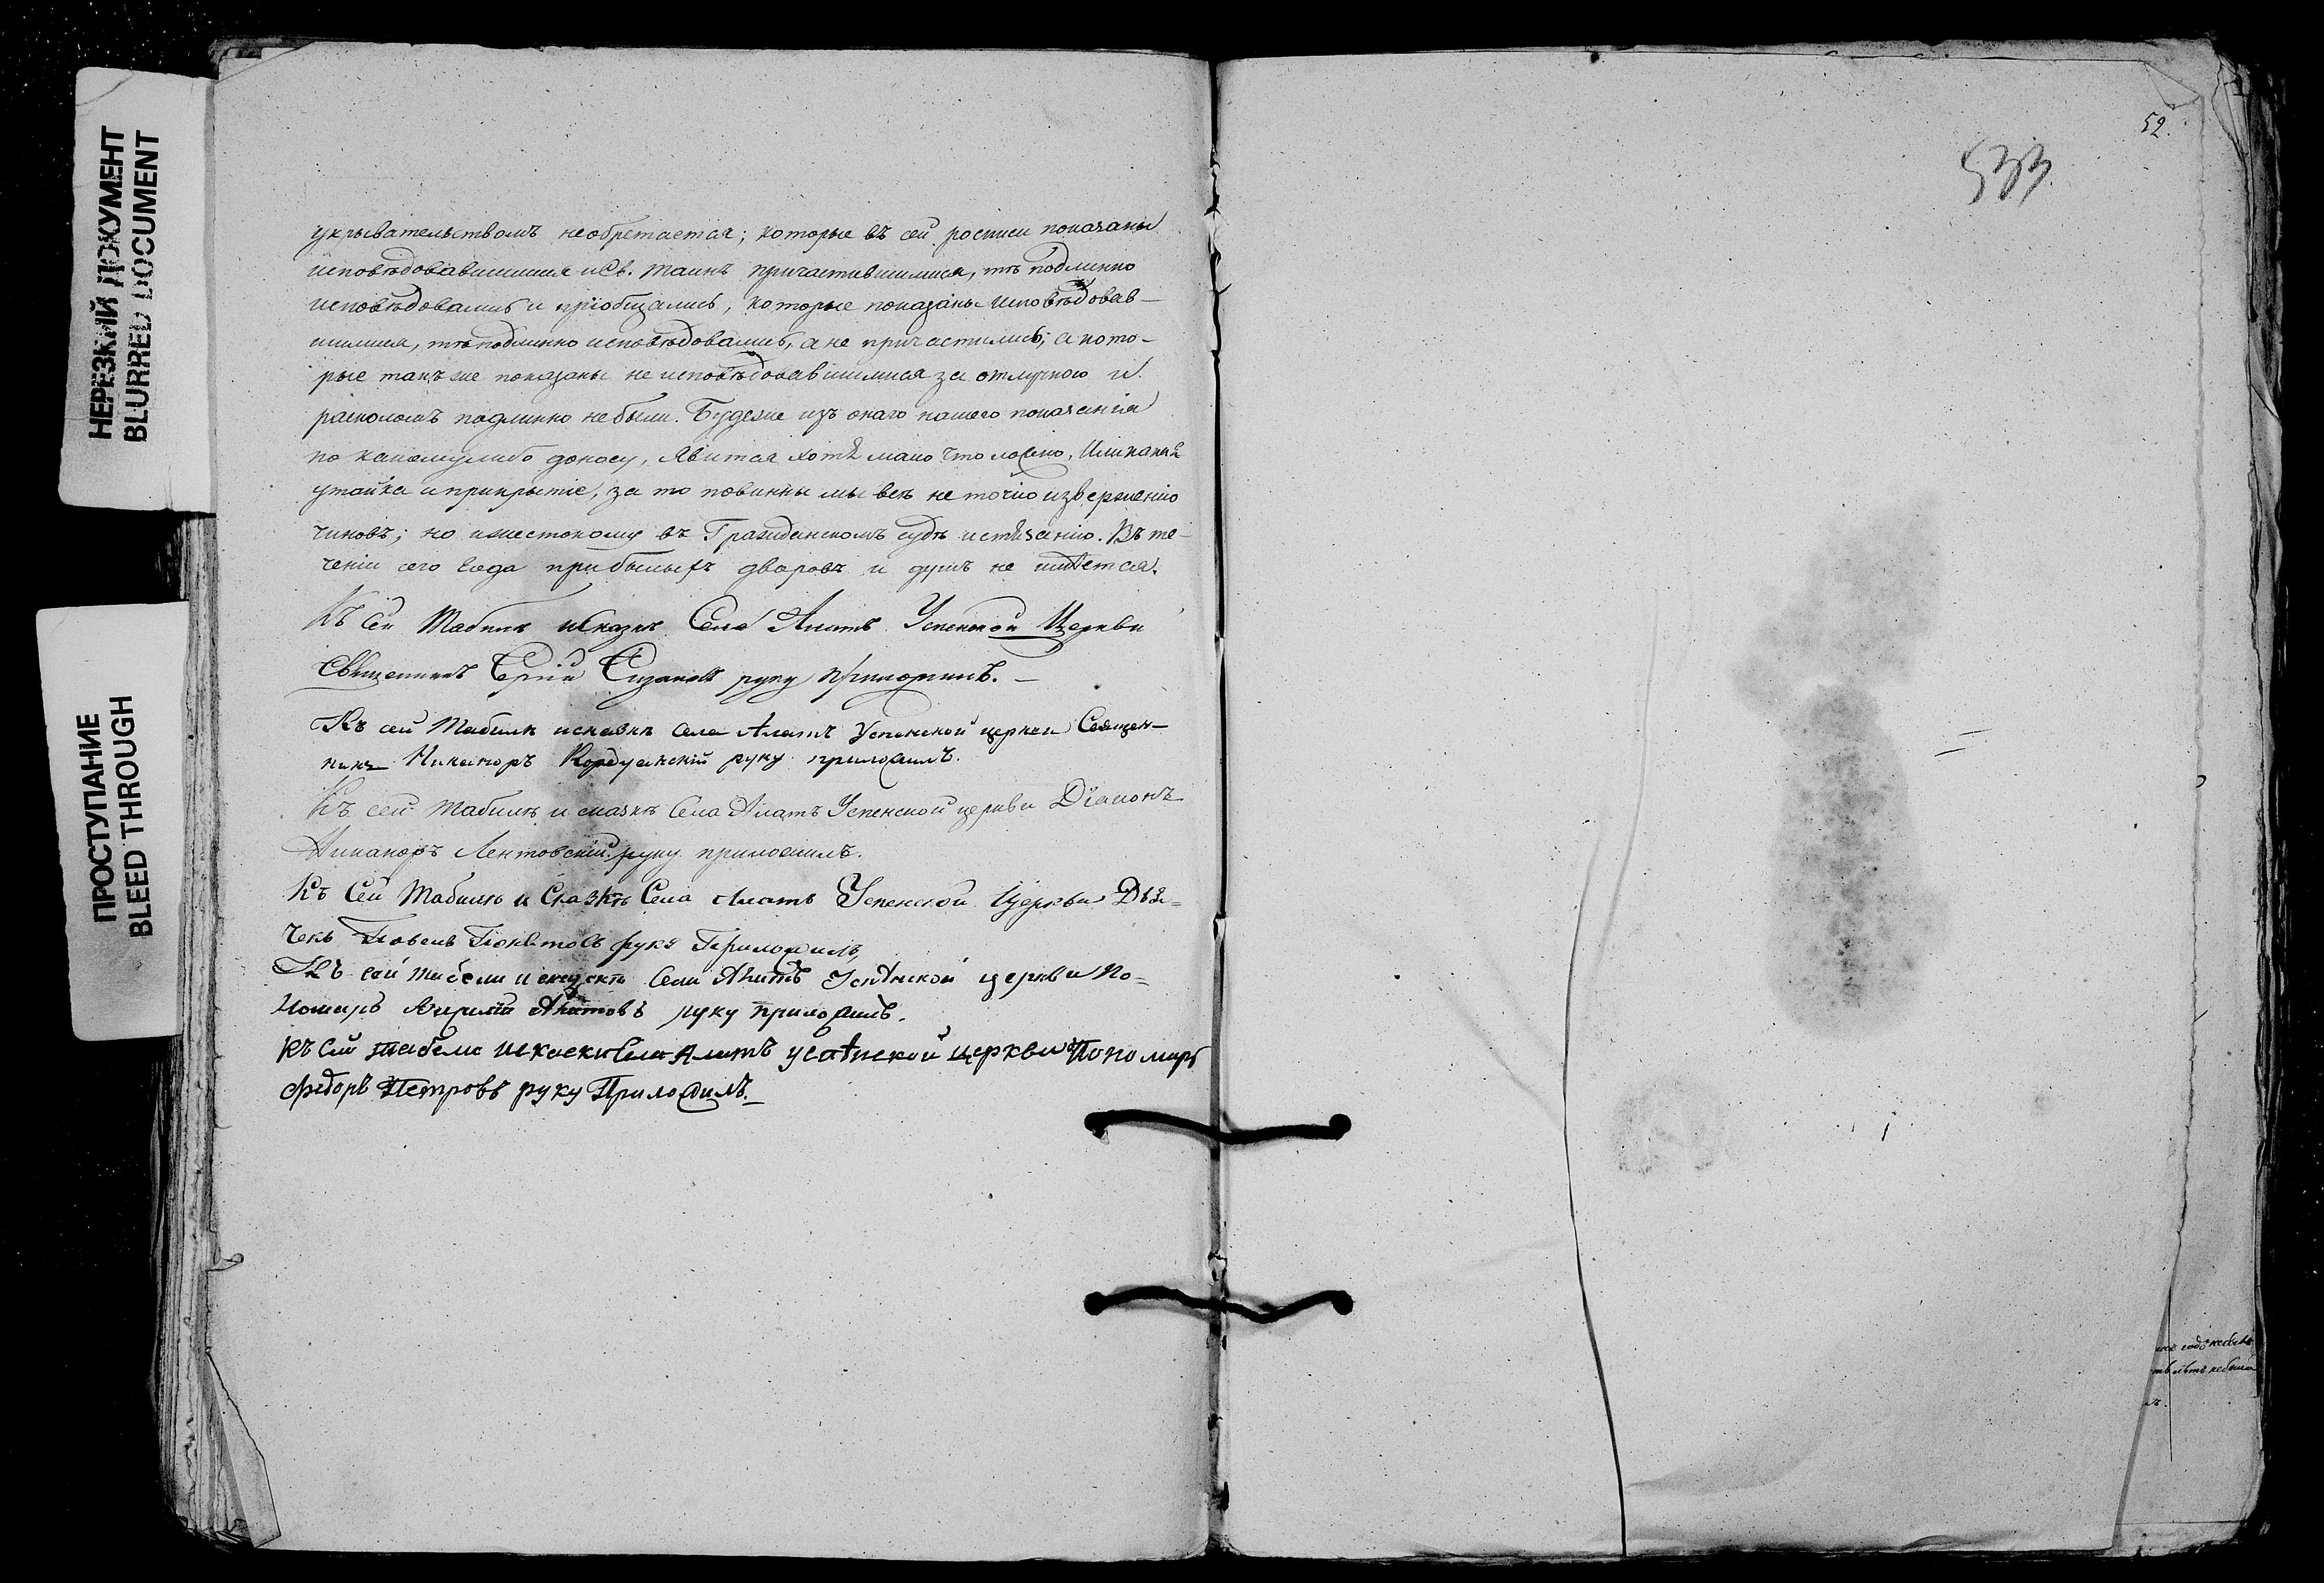 НЕРЕЗКИЙ ДОКУМЕНТ
BLURRED DOCUMENT
ПРОСТУПАНИЕ
BLEED THROUGH
укрывательствомъ необретается; которые въ сей росписи показаны
исповѣдовавшимися и Св. таинъ причастившимися, тѣ подлинно
исповѣдовались и пріобщались, которые показаны исповѣдовав-
шимися, тѣ подлинно исповѣдовались, а не причастились; а кото-
рые такъ же показаны не исповѣдовавшимися за отлучкою и
расколомъ подлинно не были. Будеже изъ онаго нашего показанія
по какомулибо доносу, явится хотя мало что ложно, или какая
утайка и прикрытіе, за то повинны мы всѣ не точію изверженію
чиновъ; но и жестокому въ Гражданскомъ судѣ истязанію. Въ те-
ченіи сего года прибылыхъ дворовъ и душъ не имѣется.
Къ сей Табели и Сказкѣ Села Алатъ Успенской Церкви
священникъ Сергій руку приложилъ.-
Къ сей Табели и сказкѣ села Алатъ Успенской церкви Священ-
никъ Никаноръ Кордуанскій руку приложилъ.
Къ сей табели и сказкѣ Села Алатъ Успенской церкви Діаконъ
Никаноръ Лентовскій руку приложилъ.
Къ Сей Табели и Сказкѣ Села Алатъ Успенской Церкви Дья=
чекъ Павелъ руку Приложилъ,
Къ сей табели и скаскѣ Села Алатъ Успѣнской церкви По=
номарь руку приложилъ.
Къ Сей табели искаски Села Алатъ успѣнской церкви Пономарь
Федоръ Петровъ руку Приложилъ.
52.
533.